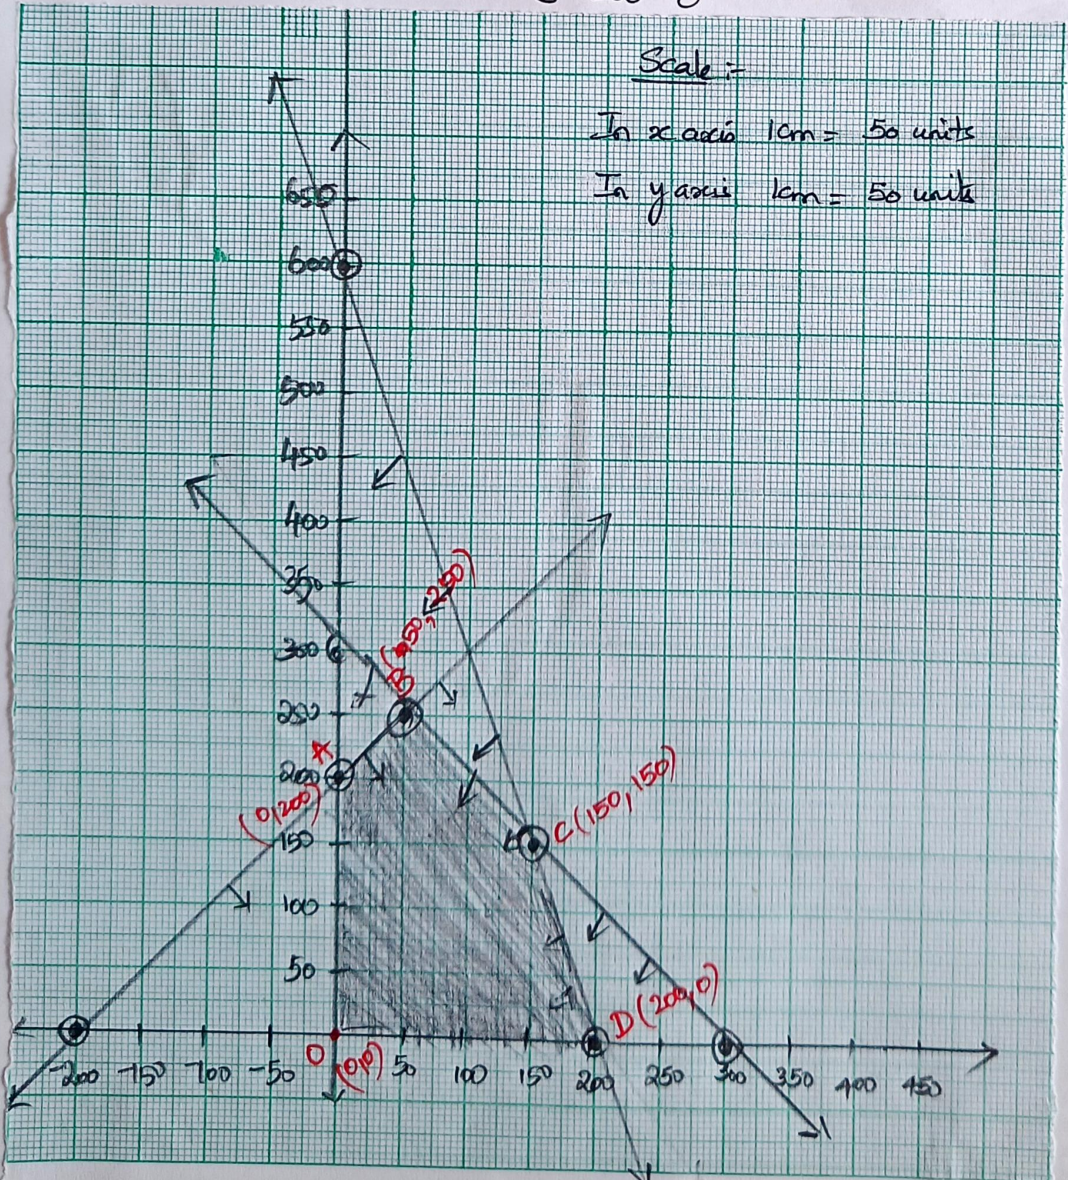 Scale :-
In x axis 1cm = 50 units
In y axis 1cm = 50 units
650
600
550
500
450
400
350
300
B (50, 250)
250
A
200
(0,200)
C (150, 150)
150
100
50
D (200, 0)
O (0,0)
-200 -150 -100 -50 50 100 150 200 250 300 350 400 450